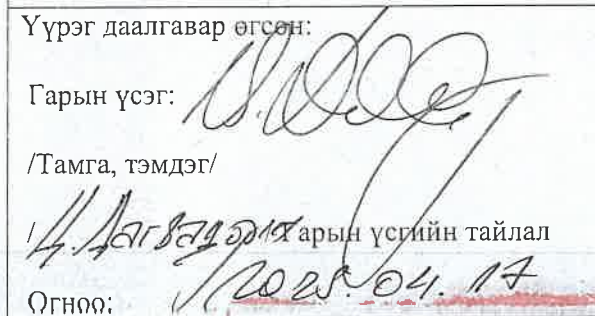 Үүрэг даалгавар өгсөн:
Гарын үсэг:
/Тамга, тэмдэг/
/Ц. Дагвадорж Гарын үсгийн тайлал
Огноо: 2025. 04. 17